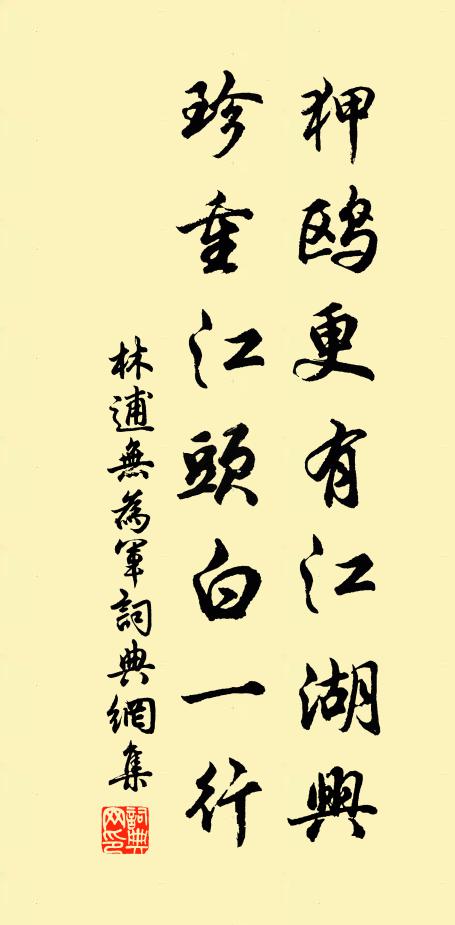 狎鸥更有江湖興
珍重江頭白一行
林逋無為軍詞典網集
詞典网印